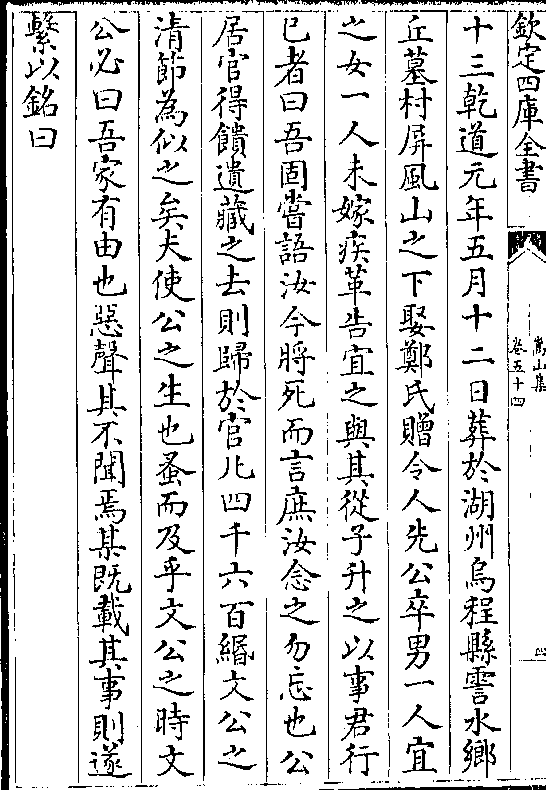 欽定四庫全書
嵩山集
卷五十四
四
十三乾道元年五月十二日葬於湖州烏程縣霅水鄉
丘墓村屏風山之下娶鄭氏贈令人先公卒男一人宜
之女一人未嫁疾革告宜之與其從子升之以事君行
巳者曰吾固嘗語汝今將死而言庶汝念之勿忘也公
居官得饋遺藏之去則歸於官凡四千六百緡文公之
清節為似之矣夫使公之生也蚤而及乎文公之時文
公必曰吾家有由也惡聲其不聞焉某既載其事則遂
繫以銘曰